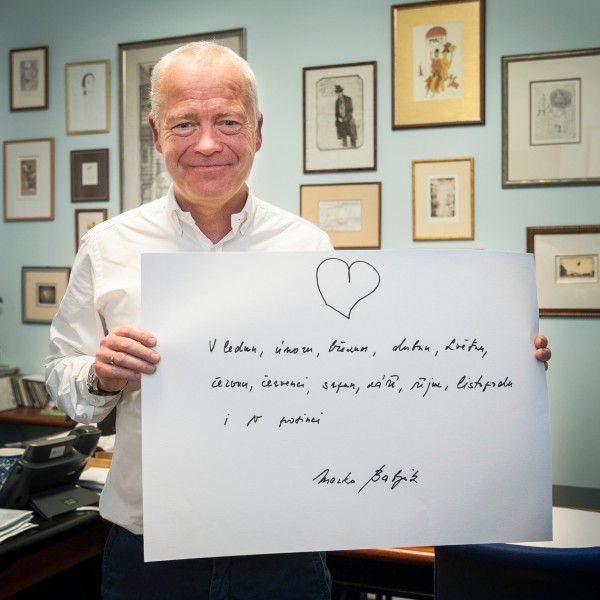 V lednu, únoru, březnu, dubnu, květnu,
červnu, červenci, srpnu, září, říjnu, listopadu
i v prosinci
Marko